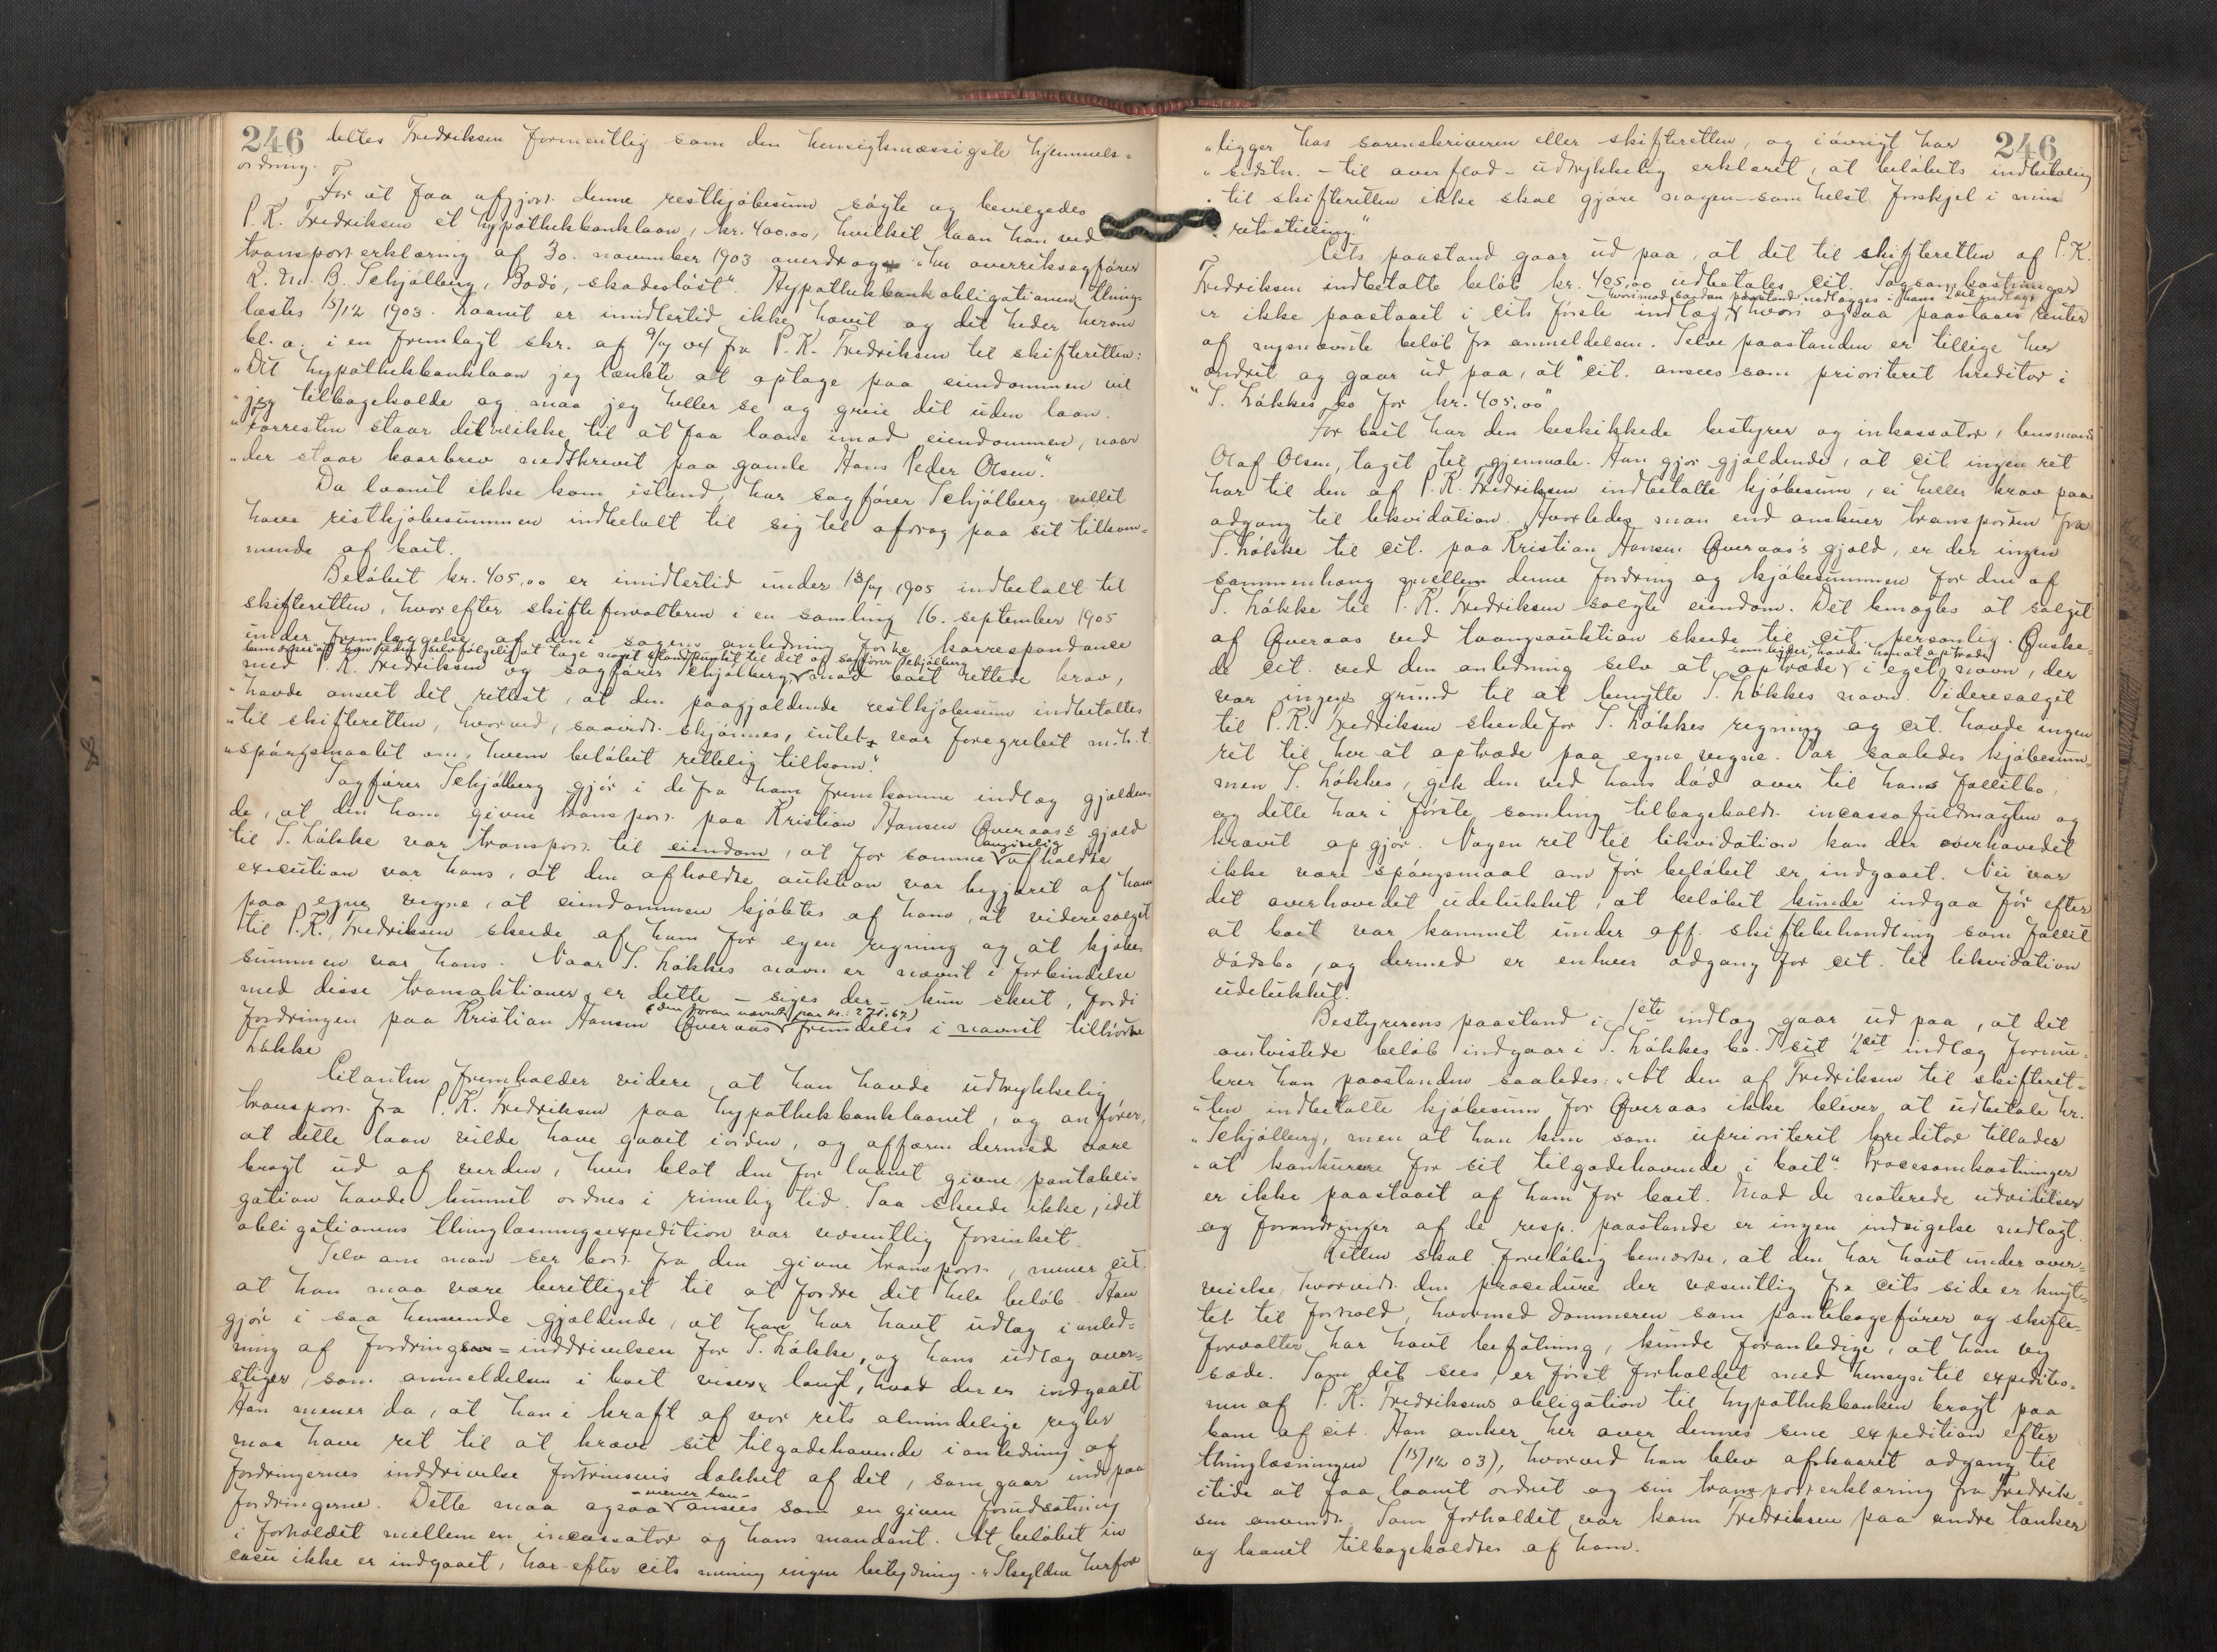 246 deltes Fredriksen formentlig som den hensigtsmæssigste hjemmels=
ordning.
For at faa afgjort denne restkjøbesum søgte og bevilgedes
P. K. Fredriksen et hypothekbanklaan, kr. 400.00, hvilket laan han ved
transporterklæring af 30. november 1903 overdrog "hr overretssagfører
R. M. B. Schjølberg, Bodø, skadesløst". Hypothekbankobligationen thing-
læstes 15/12 1903. Laanet er imidlertid ikke hævet og det heder herom
bl. a. i en fremlagt skr. af 9/4 04 fra P. K. Fredriksen til skifteretten:
"Det hypothekbanklaan jeg tænkte at optage paa eiendommen vil
"jeg tilbageholde og maa jeg heller se og greie det uden laan.
"Forresten staar det vel ikke til at faa laane imod eiendommen, naar
"der staar kaarbrev nedskrevet paa gamle Hans Peder Olsen."
Da laanet ikke kom istand, har sagfører Schjølberg villet
have restkjøbesummen indbetalt til sig til afdrag paa sit tilkom-
mende af boet.
Beløbet kr. 405,00 er imidlertid under 13/4 1905 indbetalt til
skifteretten, hvorefter skifteforvalteren i en samling 16. september 1905
under fremlæggelse af den i sagens anledning førte korrespondance
bemærket at han uden selvfølgelig at tage noget standpunkt til det af sagfører Schjølberg
med P. K. Fredriksen og sagfører Schjølberg mod boet rettede krav,
"havde anseet det rettest, at den paagjældende restkjøbesum indbetaltes
"til skifteretten, hvorved, saavidt skjønnes, intet var foregrebet m. h. t.
"spørgsmaalet om, hvem beløbet rettelig tilkom."
Sagfører Schjølberg gjør i de fra ham fremkomne indlæg gjælden-
de, at den ham givne transport paa Kristian Hansen Øveraas's gjæld
til S. Løkke var transport til eiendom, at for samme
angivelig
afholdte
execution var hans, at den afholdte auktion var begjæret af ham
paa egne vegne, at eiendommen kjøbtes af ham, at videresalget
til P. K. Fredriksen skede af ham for egen regning og at kjøbe-
summen var hans. Naar S. Løkkes navn er nævnt i forbindelse
med disse transaktioner, er dette - siges der - kun skeet, fordi
fordringen paa Kristian Hansen Øveraas
(den foran nævnte par kr.: 271,67)
fremdeles i navnet tilhørte
Løkke
Citanten fremholder videre, at han havde udtrykkelig
transport fra P. K. Fredriksen paa hypothekbanklaanet, og anfører,
at dette laan vilde have gaaet iorden, og affæren dermed være
bragt ud af verden, hvis blot den for laanet givne pantobli-
gation havde kunnet ordnes i rimelig tid. Saa skede ikke, idet
obligationens thinglæsningsexpedition var væsentlig forsinket.
Selv om man ser bort fra den givne transport, mener cit.
at han maa være berettiget til at fordre det hele beløb. Han
gjør i saa henseende gjældende, at han har havt udlæg i anled-
ning af fordrings-inddrivelsen for S. Løkke, og hans udlæg over-
stiger, som anmeldelsen i boet viser, langt, hvad der er indgaaet
Han mener da, at han i kraft af vor rets almindelige regler
maa have ret til at kræve sit tilgodehavende i anledning af
fordringernes inddrivelse fortrinsvis dækket af det, som gaar ind paa
fordringerne. Dette maa ogsaa
- mener han -
ansees som en given forudsætning
i forholdet mellem en incassator og hans mandant. At beløbet in
casu ikke er indgaaet, har efter cits mening ingen betydning. "Skylden herfor
246
"ligger hos sorenskriveren eller skifteretten, og iøvrigt har
"sidstn. - til overflod - udtrykkelig erklæret, at beløbets indbetaling
"til skifteretten ikke skal gjøre nogen-somhelst forskjel i min
"retsstilling."
Cits paastand gaar ud paa, at det til skifteretten af P. K.
Fredriksen indbetalte beløb kr. 405,00 udbetales cit. Sagsomkostninger
hvorimod saadan paastand nedlægges i hans 2det indlæg
er ikke paastaaet i cits første indlæg, hvori ogsaa paastaaes renter
af nysnævnte beløb fra anmeldelsen. Selve paastanden er tillige her
ændret og gaar ud paa, at "cit. ansees som prioriteret kreditor i
"S. Løkkes bo for kr. 405.00"
For boet har den beskikkede bestyrer og inkassator, lensmand
Olaf Olsen, taget til gjenmæle. Han gjør gjældende, at cit. ingen ret
har til den af P. K. Fredriksen indbetalte kjøbesum, ei heller krav paa
adgang til likvidation. Hvorledes man end anskuer transporten fra
S. Løkke til cit. paa Kristian Hansen Øveraas's gjæld, er der ingen
sammenhæng mellem denne fordring og kjøbesummen for den af
S. Løkke til P. K. Fredriksen solgte eiendom. Det benægtes at salget
af Øveraas ved tvangsauktion skede til cit. personlig. Ønske-
de cit. ved den anledning selv at optræde
i eget navn, der
var ingen grund til at benytte S. Løkkes navn. Videresalget
til P. K. Fredriksen skede for S. Løkkes regning og cit. havde ingen
ret til her at optræde paa egne vegne. Var saaledes kjøbesum-
men S. Løkkes, gik den ved hans død over til hans fallitbo,
og dette har i første samling tilbagekaldt incassofuldmagten og
krævet opgjør. Nogen ret til likvidation kan der overhovedet
ikke være spørgsmaal om før beløbet er indgaaet. Nu var
det overhovedet udelukket, at beløbet kunde indgaa før efter
at boet var kommet under off. skiftebehandling som fallit
dødsbo, og dermed er enhver adgang for cit. til likvidation
udelukket.
Bestyrerens paastand i 1ste indlæg gaar ud paa, at det
omtvistede beløb indgaar i S. Løkkes bo. I sit 2det indlæg formu-
lerer han paastanden saaledes: "At den af Fredriksen til skifteret-
"ten indbetalte kjøbesum for Øveraas ikke bliver at udbetale hr.
"Schjølberg, men at han kun som uprioriteret kreditor tillades
"at konkurere for sit tilgodehavende i boet". Procesomkostninger
er ikke paastaaet af ham for boet. Mod de noterede udvidelser
og forandringer af de resp. paastande er ingen indsigelse nedlagt.
Retten skal foreløbig bemærke, at den har havt under over-
veielse, hvorvidt den procedure der væsentlig fra cits side er knyt-
tet til forhold, hvormed dommeren som pantebogefører og skifte-
forvalter har havt befatning, kunde foranledige, at han veg
sæde. Som det sees, er først forholdet med hensyn til expeditio-
nen af P. K. Fredriksens obligation til hypothekbanken bragt paa
bane af cit. Han anker her over dennes sene expedition efter
thinglæsningen (15/12 03), hvorved han blev afskaaret adgang til
itide at faa laanet ordnet og sin transporterklæring fra Fredrik-
sen anvendt. Som forholdet var kom Fredriksen paa andre tanker
og laanet tilbageholdtes af ham.